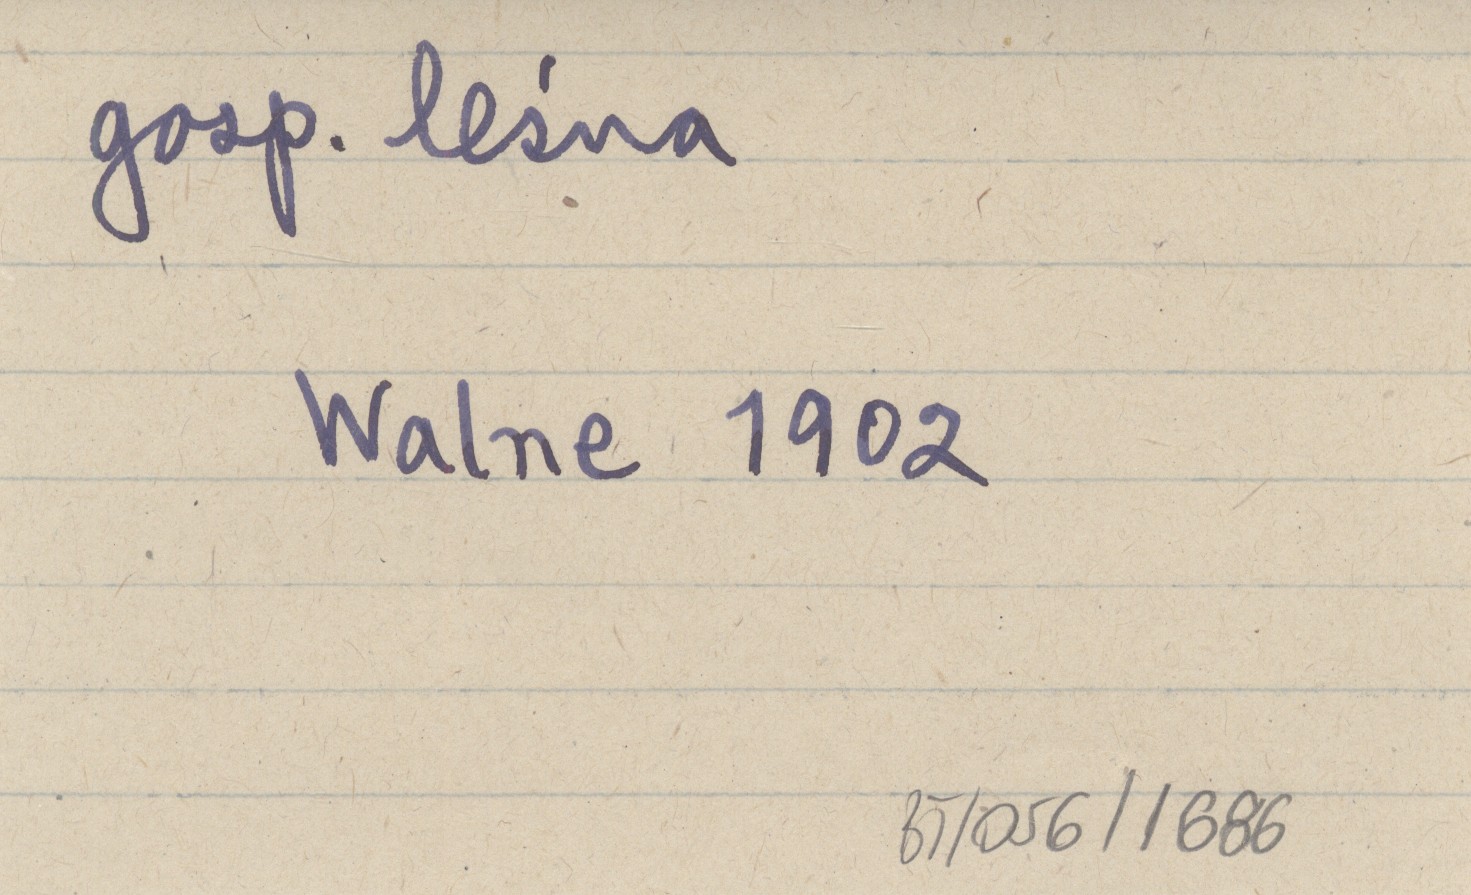 gosp. leśna
Walne 1902
BT/056/1686